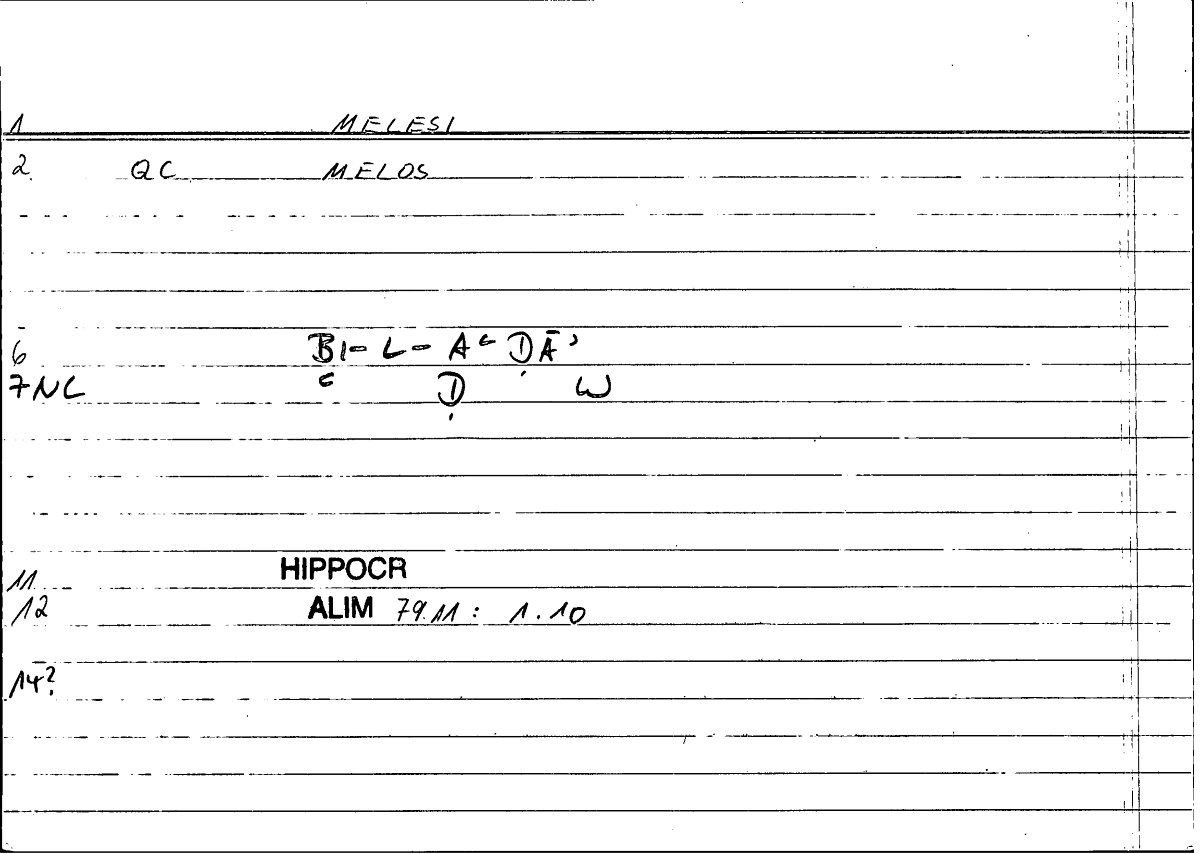 1 MELESI
2 QC MELOS
6 BI- L- Aᶜ ḌĀʾ
7NC ᶜ Ḍ W
11 HIPPOCR
12 ALIM 79.11 : 1.10
14?